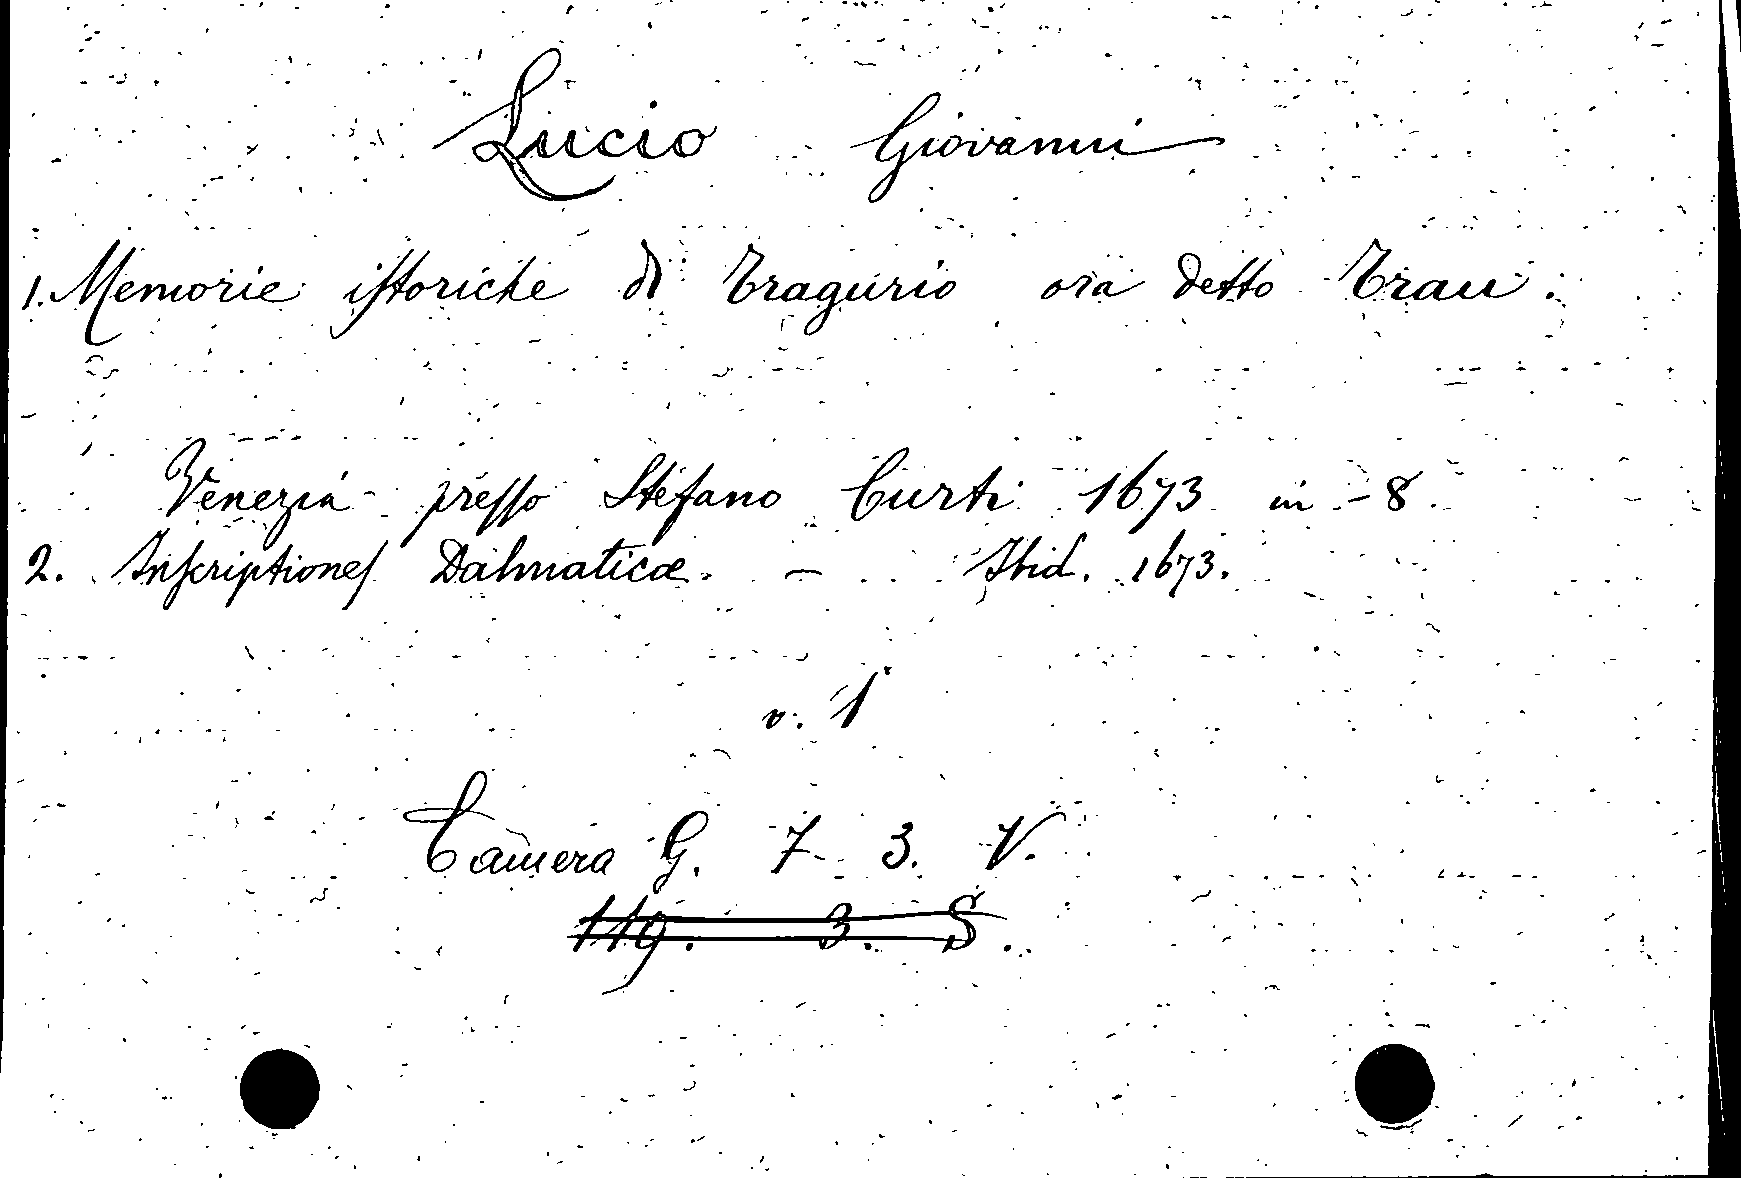 Lucio Giovanni
1. Memorie istoriche di Tragurio ora detto Trau:
Venezia presso Stefano Curti 1673 in-8
2. Inscriptiones Dalmaticæ. – Ibid. 1673.
v. 1
Camera G. 7. 3. V.
119. 3. S.